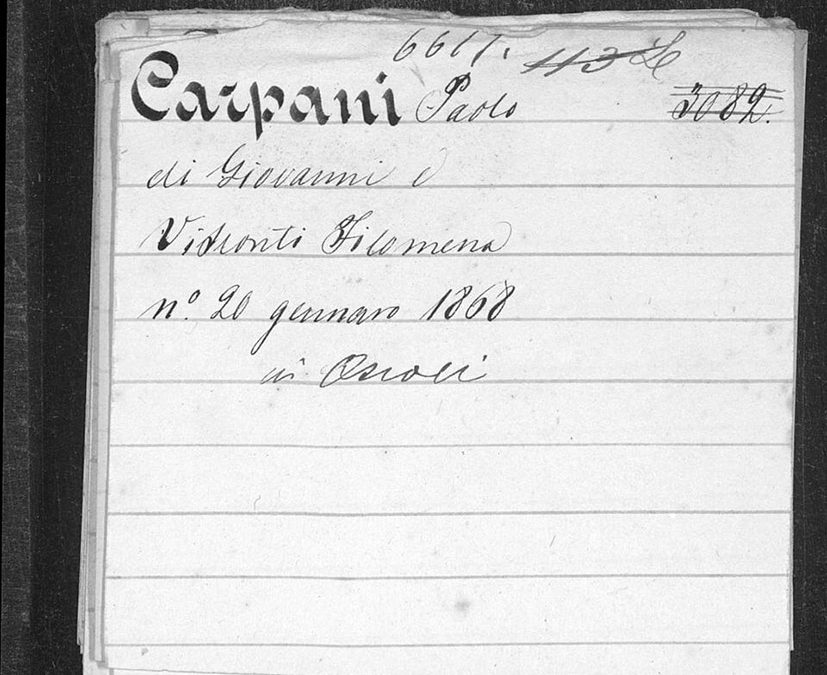 6617. 113 L
Carpani Paolo 3082.
di Giovanni e
Visconti Filomena
n.º 20 gennaro 1868
in